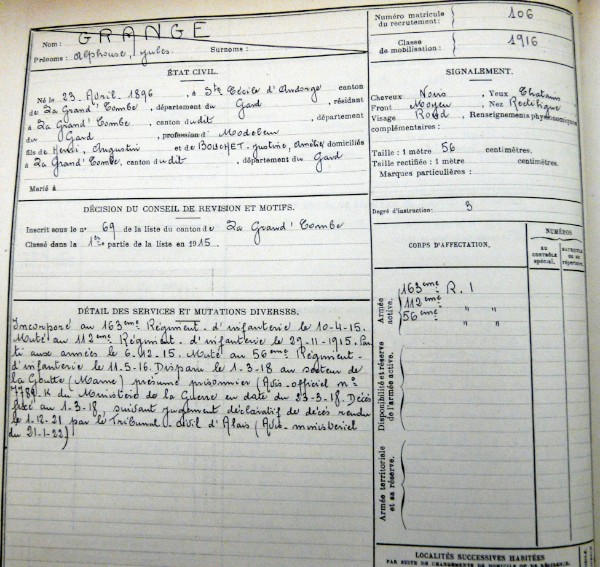 Nom : GRANGE
Prénoms : Alphonse, Jules. Surnoms :
Numéro matricule du recrutement : 106
Classe de mobilisation : 1916
ÉTAT CIVIL.
Né le 23 Avril 1896, à Ste Cécile d'Andorge canton
de La Grand' Combe, département du Gard, résidant
à La Grand' Combe, canton dudit, département
du Gard, profession d' Modeleur
fils de Henri, Augustin et de BOUCHET Justine, Amélie domiciliés
à La Grand' Combe, canton dudit, département du Gard
Marié à
SIGNALEMENT.
Cheveux Noirs, Yeux Chatains
Front Moyen, Nez Rectiligne
Visage Rond, Renseignements physionomiques
complémentaires :
Taille : 1 mètre 56 centimètres.
Taille rectifiée : 1 mètre centimètres.
Marques particulières :
DÉCISION DU CONSEIL DE REVISION ET MOTIFS.
Inscrit sous le n° 69 de la liste du canton de La Grand' Combe
Classé dans la 1re partie de la liste en 1915.
Degré d'instruction : 3
DÉTAIL DES SERVICES ET MUTATIONS DIVERSES.
Incorporé au 163eme Régiment d'infanterie le 10-4-15.
Muté au 112eme Régiment d'infanterie le 29-11-1915. Par
ti aux armées le 6.12.15. Muté au 56eme Régiment
d'infanterie le 11.5.16. Disparu le 1-3-18 au secteur de
la (Marne) présumé prisonnier (Avis officiel n°
7789-K du Ministère de la Guerre en date du 23-3-18. Décès
fixé au 1-3-18 suivant jugement déclaratif de décès rendu
le 1.12.21 par le Tribunal civil d'Alais (Avis ministériel
du 21-1-22)
CORPS D'AFFECTATION.
NUMÉROS
AU CONTRÔLE SPÉCIAL.
MATRICULE OU AU RÉPERTOIRE.
Armée active.
163eme R. I
112eme " "
56eme " "
Disponibilité et réserve de l'armée active.
Armée territoriale et sa réserve.
LOCALITÉS SUCCESSIVES HABITÉES
PAR SUITE DE CHANGEMENTS DE DOMICILE OU DE RÉSIDENCE.